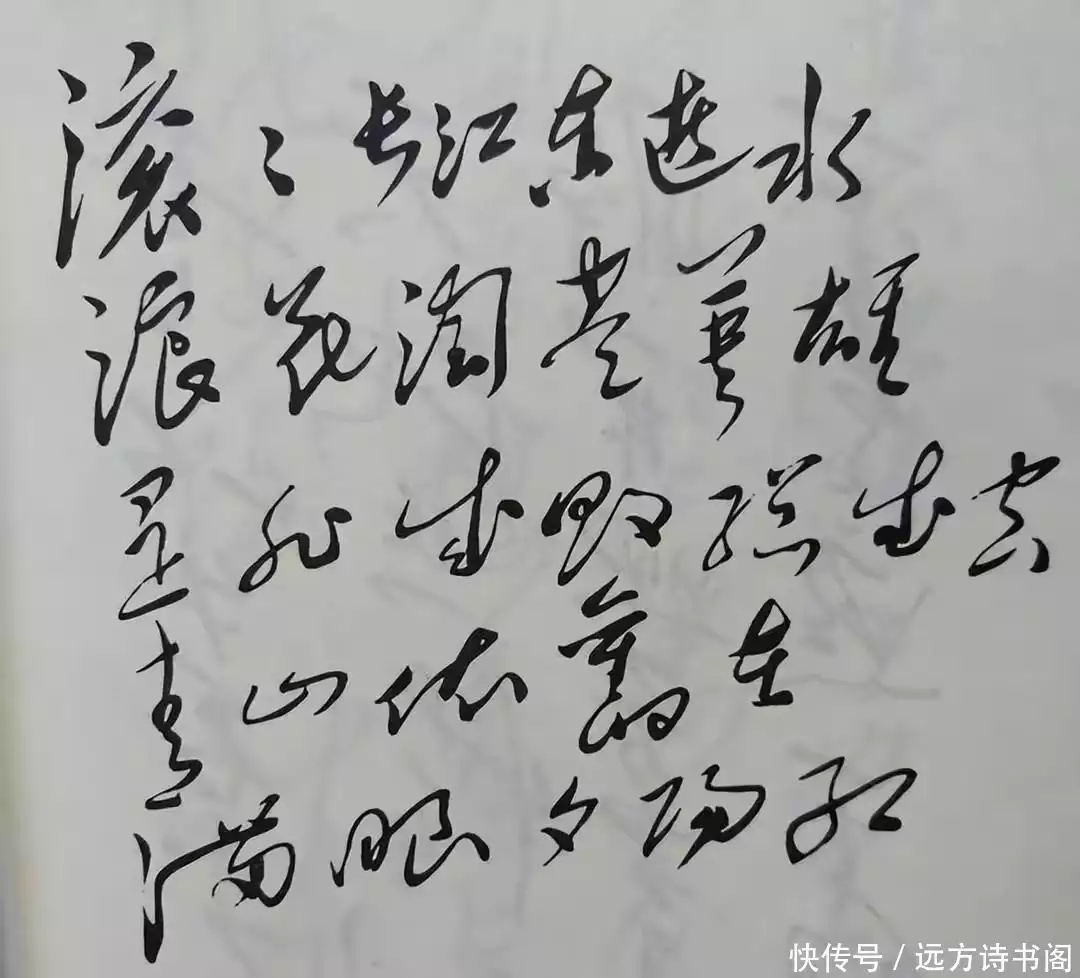 滚〻长江东逝水
浪花淘尽英雄
是非成败總成空
青山依舊在
满眼夕阳红
快传号 / 远方诗书阁